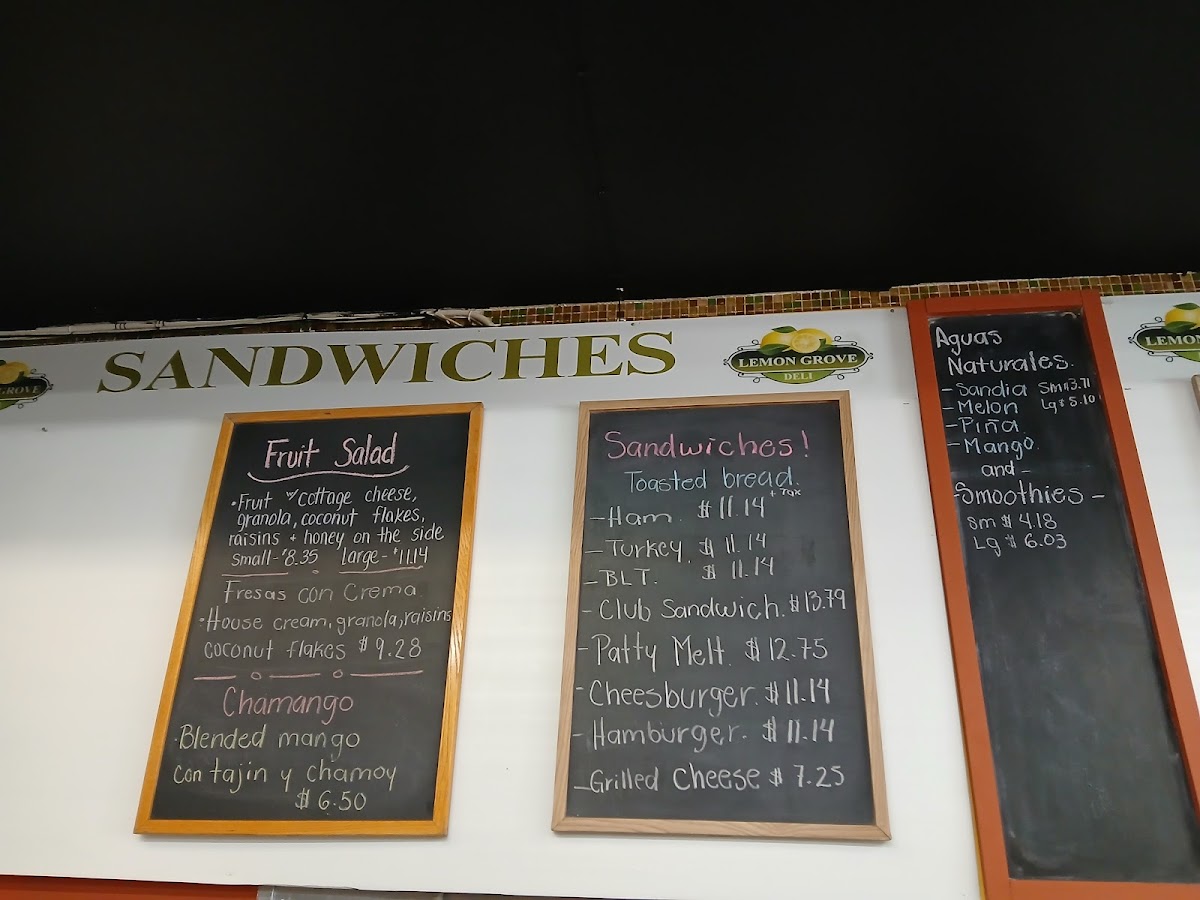 SANDWICHES
LEMON GROVE
DELI
GROVE
Fruit Salad
• Fruit w/ cottage cheese,
granola, coconut flakes,
raisins + honey on the side
small - $8.35 large - $11.14
Fresas con Crema
• House cream, granola, raisins
coconut flakes $9.28
Chamango
• Blended mango
con tajin y chamoy
$6.50
Sandwiches!
Toasted bread.
+ Tax
- Ham. $11.14
- Turkey. $11.14
- BLT. $11.14
- Club Sandwich. $13.79
- Patty Melt. $12.75
- Cheesburger. $11.14
- Hamburger. $11.14
- Grilled cheese $7.25
Aguas
Naturales.
- Sandia Sm $3.71
- Melon Lg $5.10
- Piña.
- Mango.
and -
- Smoothies -
Sm $4.18
Lg $6.03
LEMON